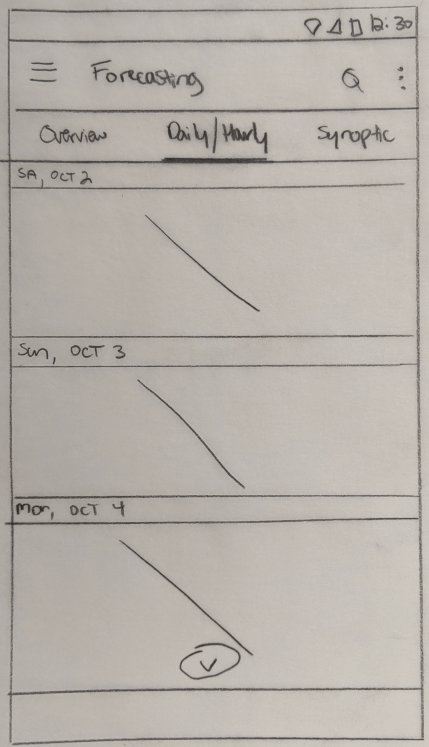 12:30
Forecasting
Overview Daily/Hourly Synoptic
SA, OCT 2
Sun, OCT 3
Mon, OCT 4